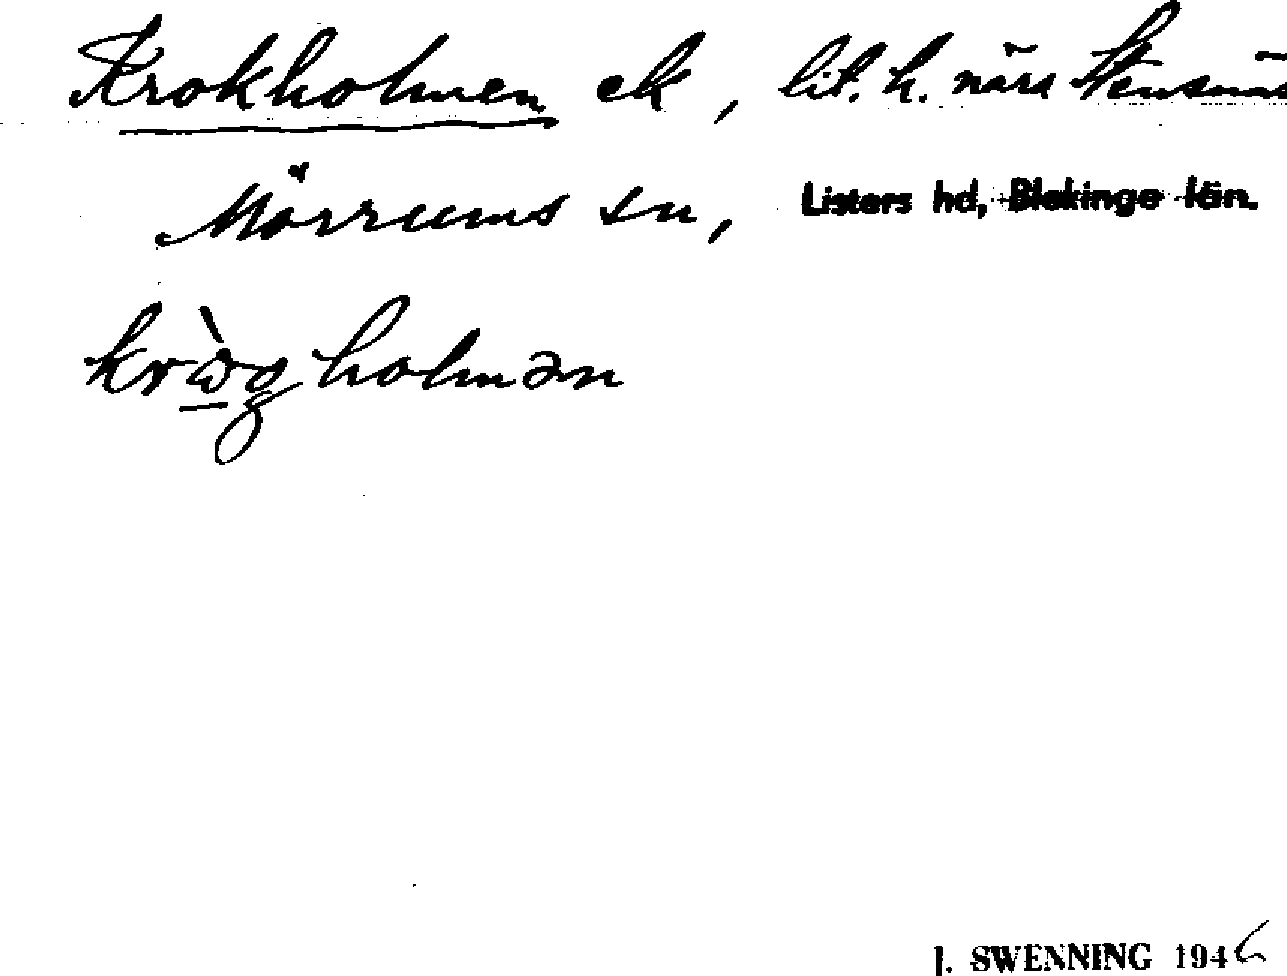 Krokholmen ek, lit. h. nära Stensnäs
Mörrums sn, Listers hd, Blekinge län.
krò̱gholmən
J. SWENNING 1946